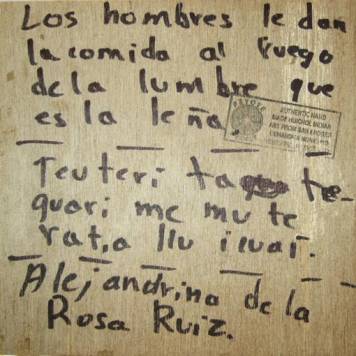 Los hombres le dan
la comida al fuego
de la lumbre que
es la leña.
Teuteri ta te-
quari me mu te
rat,a llu i cuai.
Alejandrina de la
Rosa Ruiz.
PEYOTE
AUTHENTIC HAND
MADE HUICHOL INDIAN
ART FROM SAN ANDRES